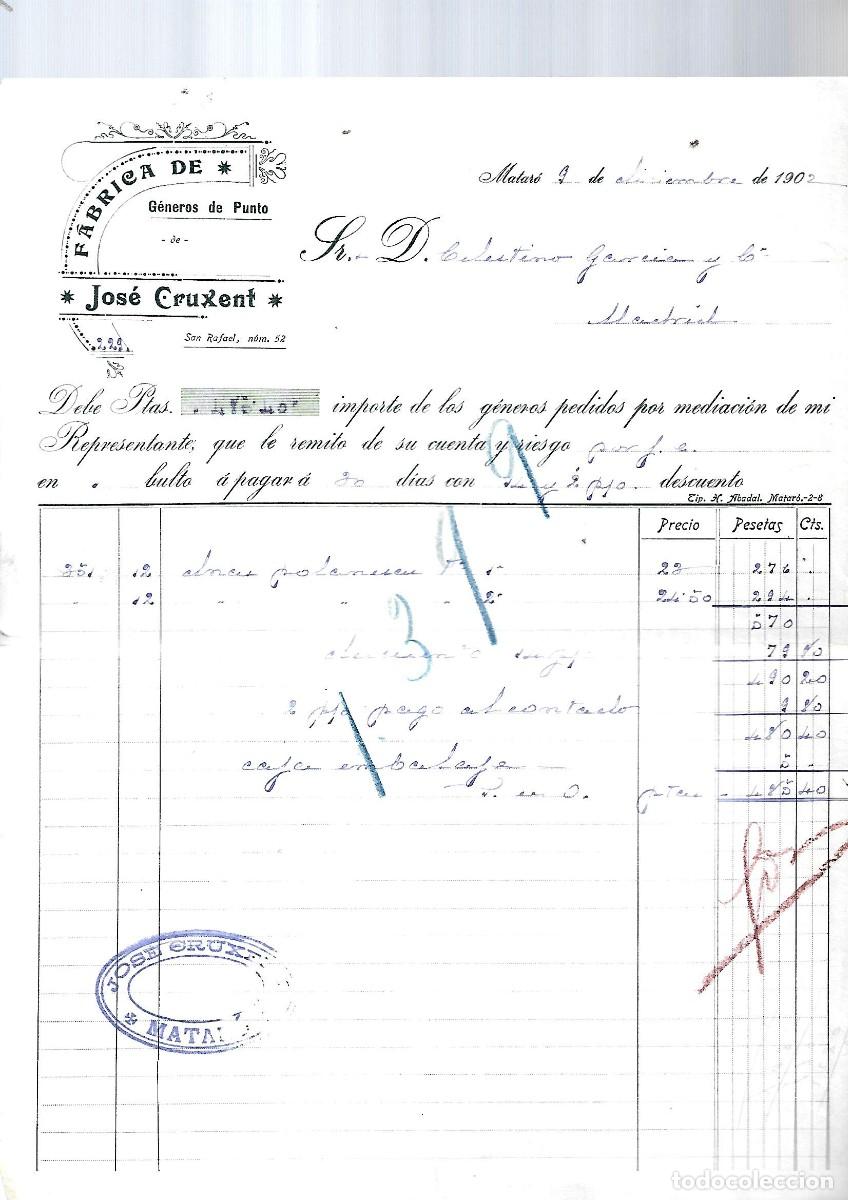 FÁBRICA DE
Géneros de Punto
- de -
José Cruxent
San Rafael, núm. 52
229
Mataró 9 de diciembre de 1902
Sr. D. Celestino Garcia y Cª
Madrid
Debe Ptas. 485'40 importe de los géneros pedidos por mediación de mi
Representante, que le remito de su cuenta y riesgo por f. c.
en bulto á pagar á 30 días con y 2 p/o descuento
Tip. H. Abadal. Mataró.-2-8
Precio Pesetas Cts.
351 12 1ª 23 276 .
" 12 " " " 2ª 24 50 294 .
570
79 80
490 20
2 p/o pago al contado 9 80
480 40
caja embalaje 5 .
S. e u O. ptas 485 40
JOSE CRUX
MATA
todocoleccion